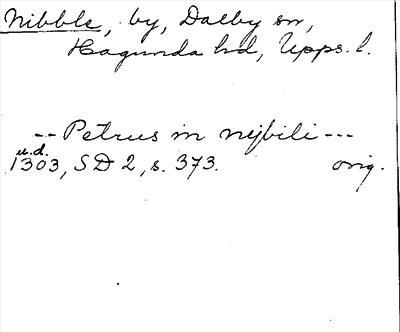 Nibble, by, Dalby sn,
Hagunda hd, Upps. l.
-- Petrus in nejbili ---
u.d.
1303, SD 2, s. 373. orig.